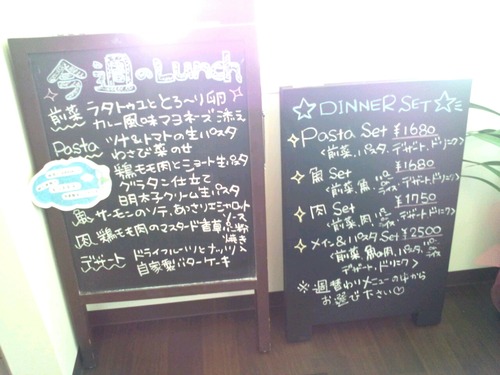 今週のLunch
前菜 ラタトゥユととろ〜り卵
カレー風味マヨネーズ添え
Pasta ツナ&トマトの生パスタ
わさび菜のせ
鶏モモ肉とショート生パスタ
グラタン仕立て
明太子クリーム生パスタ
魚 サーモンのソテ、あさりエシャロット
ソース
肉 鶏モモ肉のマスタード香草パン粉
焼き
デザート ドライフルーツとナッツ
自家製バターケーキ
☆DINNER SET☆
Pasta Set ¥1680
<前菜、パスタ、デザート、ドリンク>
魚 Set ¥1680
<前菜、魚、パンorライス、デザート、ドリンク>
肉 Set ¥1750
<前菜、肉、パンorライス、デザート、ドリンク>
メイン&パスタ Set ¥2500
<前菜、魚or肉、パスタ、パンorライス
デザート、ドリンク>
※週替わりメニューの中から
お選び下さい♡